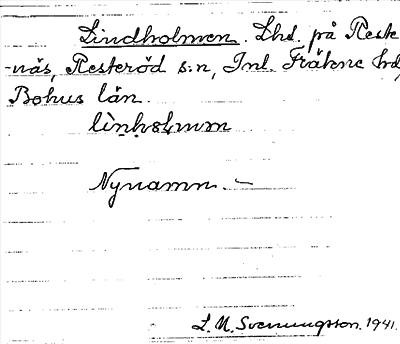 Lindholmen. Lhs. på Reste
-näs, Resteröd s:n, Inl. Fräkne hd,
Bohus län.
lìnhɷlmən
Nynamn. –
L. M. Svenungsson. 1941.